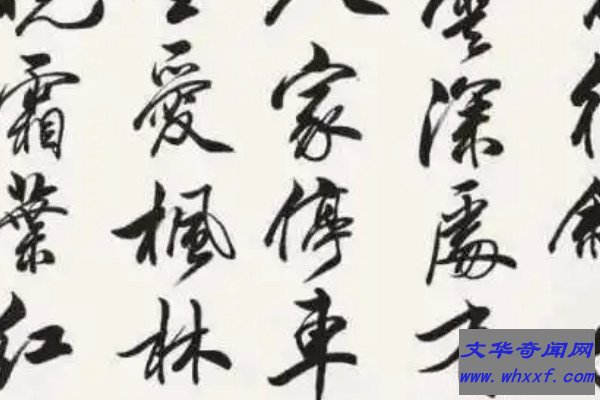 雲深處有
人家停車
坐愛楓林
晚霜葉红
文华奇闻网
www.whxxf.com